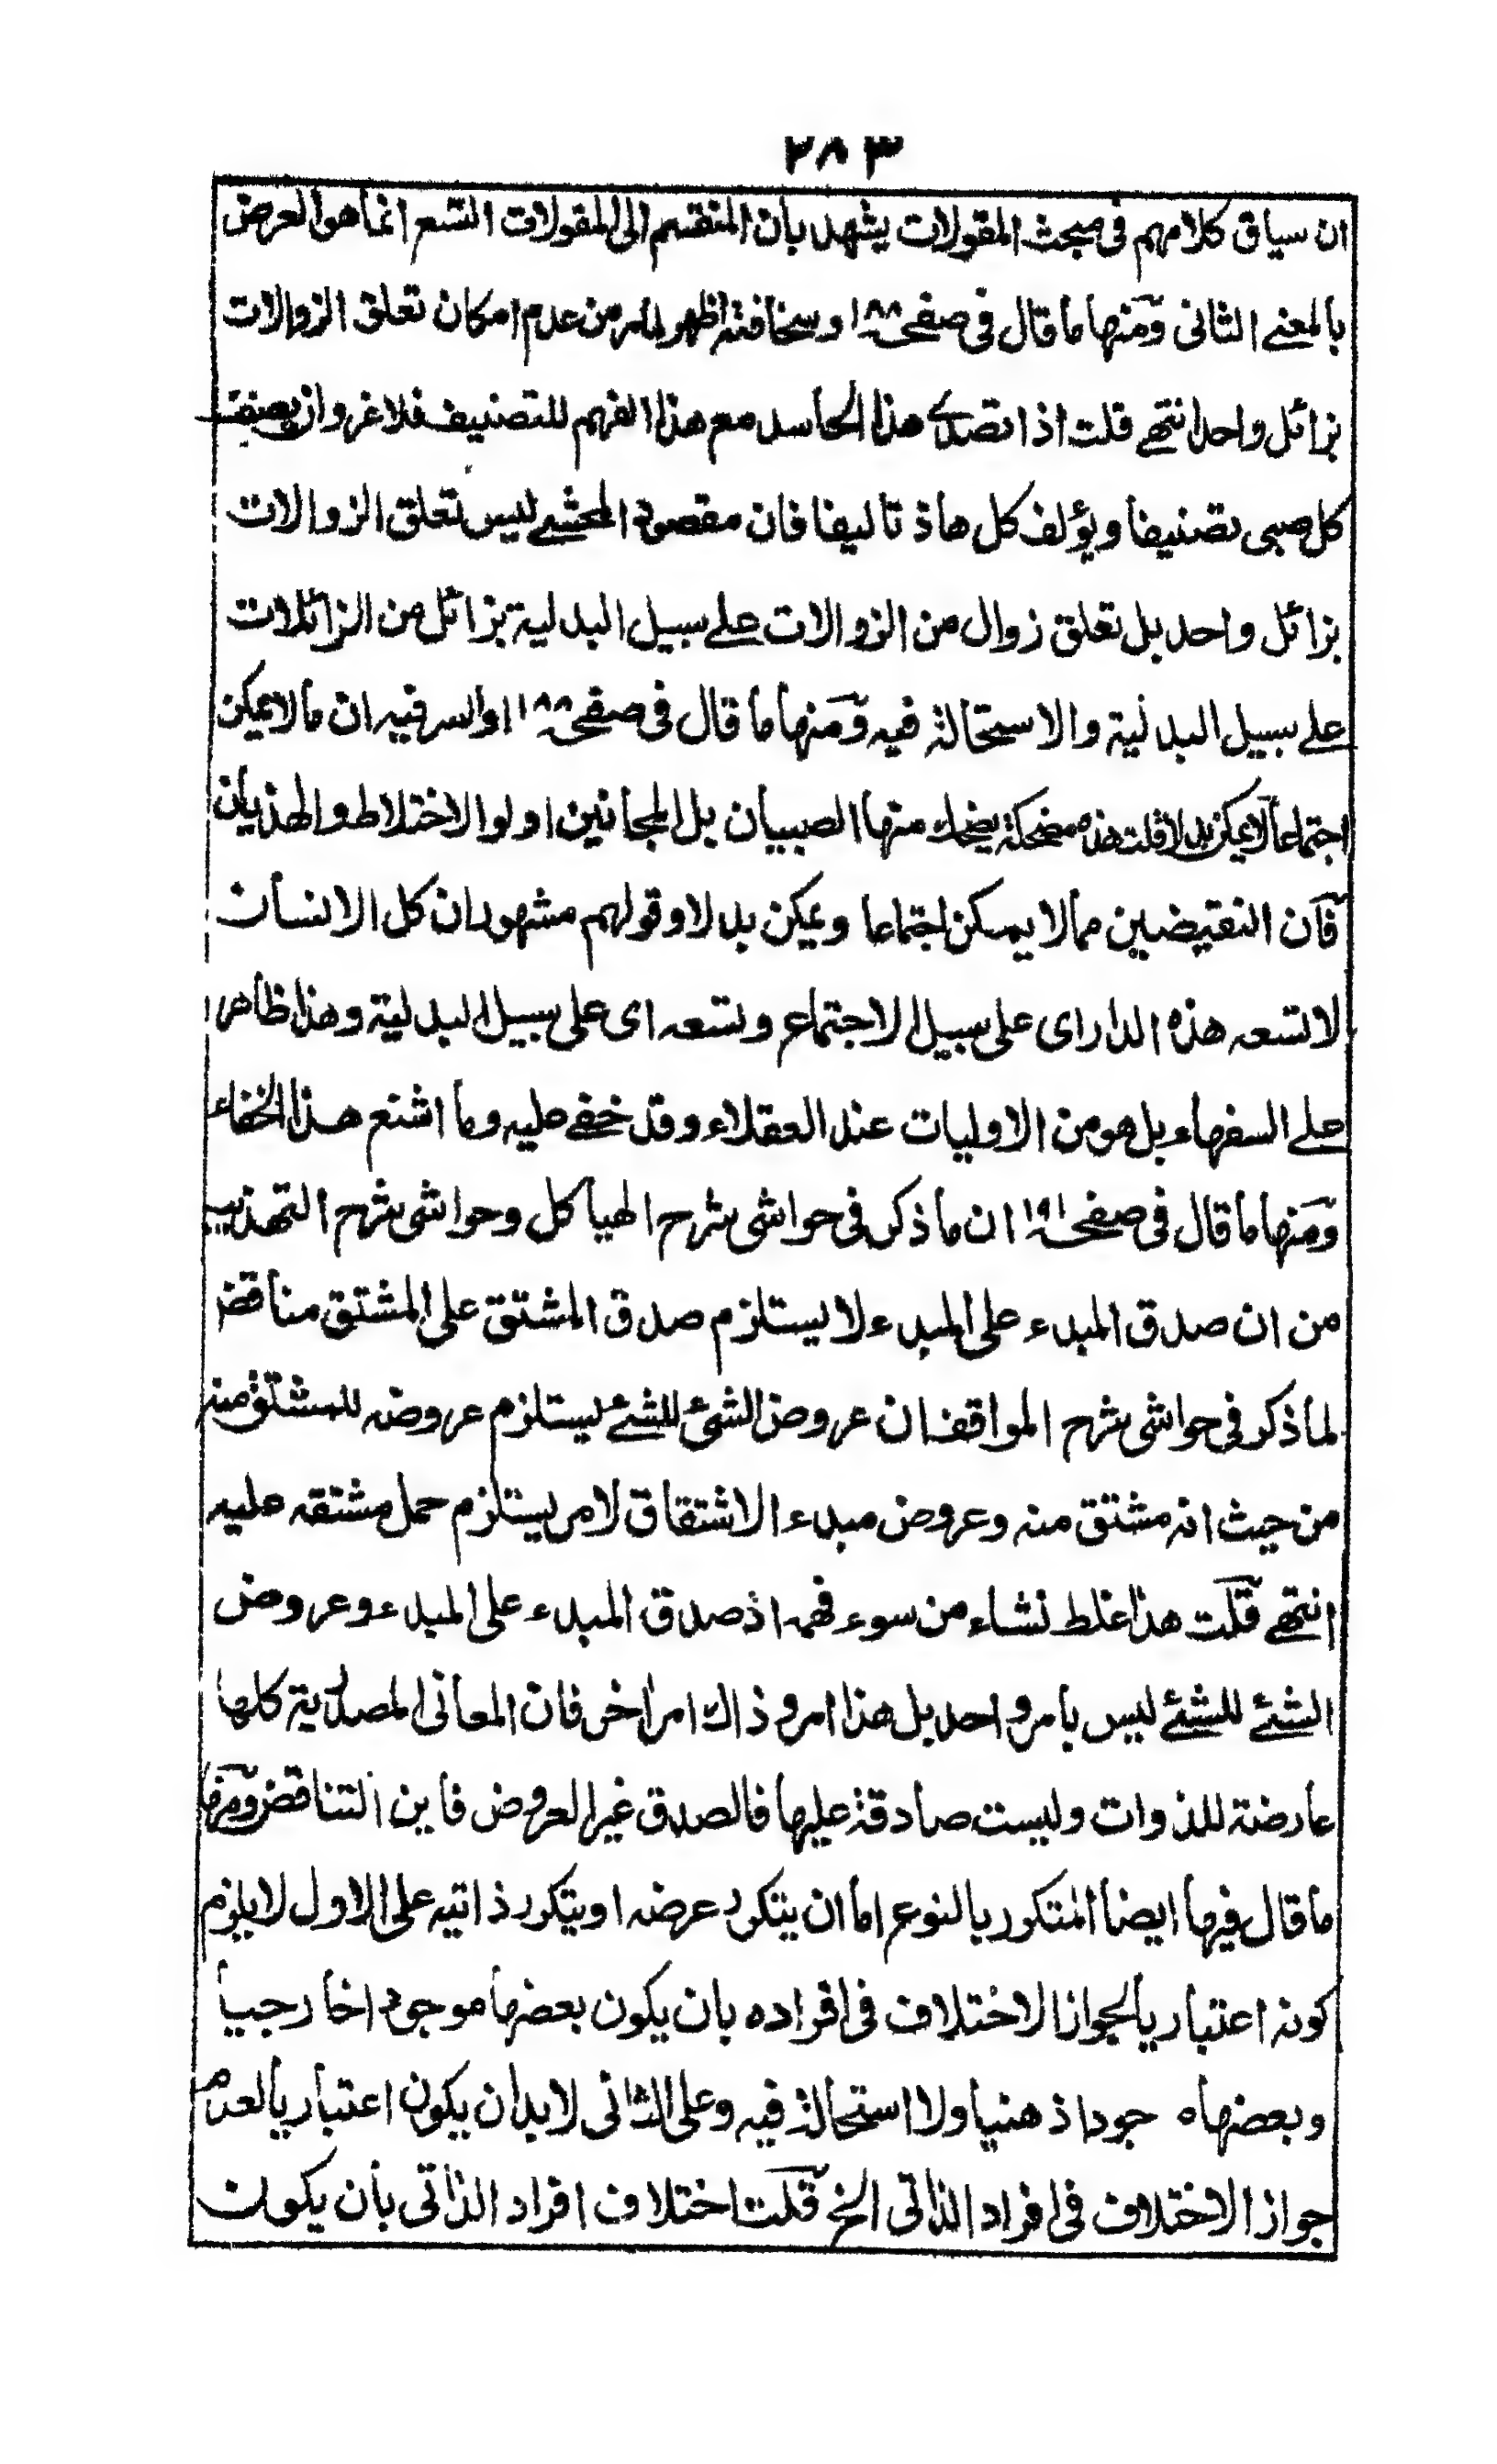 ٢٨٣
ان سياق كلامهم فى مبحث المقولات يشهد بان المنقسم الى المقولات التسع انما هو العرض
بالمعنے الثانى ومنها ما قال فى صفحه ١٨٨ وسخافته اظهر لما مر من عدم امكان تعلق الزوالات
بزائل واحد انتهے قلت اذا تصدے هذا الحاسد مع هذا الفهم للتصنيف فلا غرو ان يصنف
كل صبى تصنيفا ويؤلف كل هاذ تاليفا فان مقصود المحشے ليس تعلق الزوالات
بزائل واحد بل تعلق زوال من الزوالات علے سبيل البدلية بزائل من الزائلات
علے سبيل البدلية والاستحالة فيه ومنها ما قال فى صفحه ١٨٨ اوالسر فيه ان ما لا يمكن
اجتماعا لا يمكن بدلا قلت هذه مضحكة يضحك منها الصبيان بل المجانين اولوا الاختلاط والهذيان
فان النقيضين مما لا يمكن اجتماعا ويمكن بدلا وقولهم مشهور ان كل الانسان
لا تسعه هذه الدار اى على سبيل الاجتماع وتسعه اى على سبيل البدلية وهذا ظاهر
علے السفهاء بل هو من الاوليات عند العقلاء وقد خفے عليه وما اشنع هذا الخفاء
ومنها ما قال فى صفحه ١٩١ ان ما ذكر فى حواشى شرح الهياكل وحواشى شرح التهذيب
من ان صدق المبدء على المبدء لا يستلزم صدق المشتق على المشتق مناقض
لما ذكر فى حواشى شرح المواقف ان عروض الشئ للشئے يستلزم عروضه للمشتق منه
من حيث انه مشتق منه وعروض مبدء الاشتقاق لامر يستلزم حمل مشتقه عليه
انتهے قلت هذا غلط نشاء من سوء فهمه اذ صدق المبدء على المبدء وعروض
الشئے للشئے ليس بامر واحد بل هذا امر وذاك امر اخر فان المعانى المصدرية كلها
عارضة للذوات وليست صادقة عليها فالصدق غير العروض فاين التناقض ومنها
ما قال فيها ايضا المتكرر بالنوع اما ان يتكرر عرضه او يتكرر ذاتيه على الاول لا يلزم
كونه اعتباريا لجواز الاختلاف فى افراده بان يكون بعضها موجودا خارجيا
وبعضها ه جودا ذهنيا ولا استحالة فيه وعلى الثانى لا بد ان يكون اعتباريا لعدم
جواز الاختلاف فى افراد الذاتى الخ قلت اختلاف افراد الذاتى بان يكون